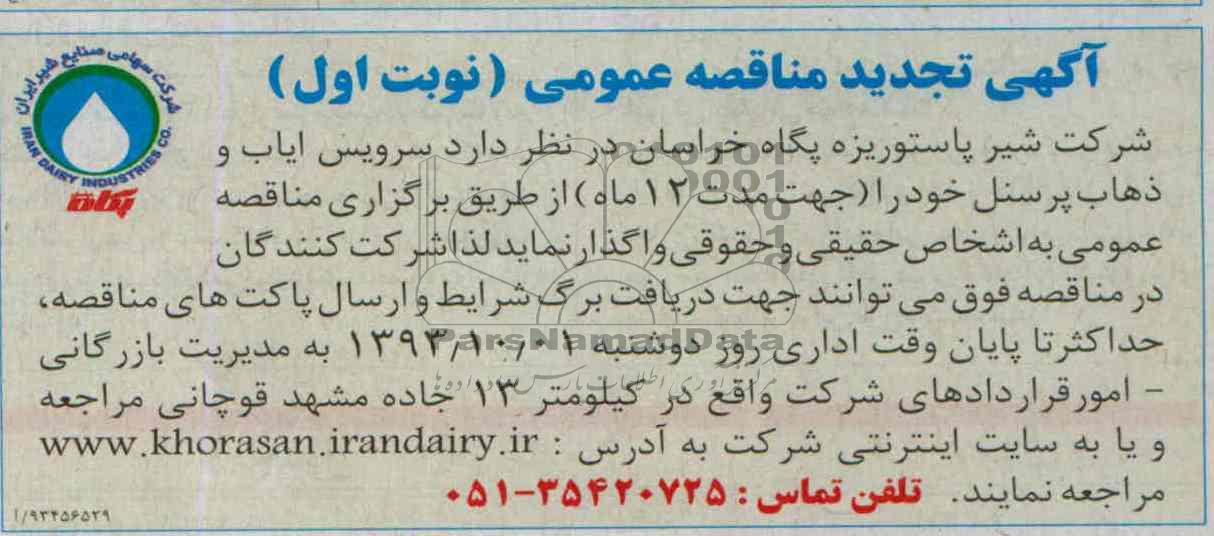 آگهی تجدید مناقصه عمومی (نوبت اول)
شرکت سهامی صنایع شیر ایران
IRAN DAIRY INDUSTRIES CO.
پگاه
شرکت شیر پاستوریزه پگاه خراسان در نظر دارد سرویس ایاب و
ذهاب پرسنل خود را (جهت مدت ۱۲ ماه) از طریق برگزاری مناقصه
عمومی به اشخاص حقیقی و حقوقی واگذار نماید لذا شرکت کنندگان
در مناقصه فوق می توانند جهت دریافت برگ شرایط و ارسال پاکت های مناقصه،
حداکثر تا پایان وقت اداری روز دوشنبه ۱۳۹۳/۱۰/۰۱ به مدیریت بازرگانی
- امور قراردادهای شرکت واقع در کیلومتر ۱۳ جاده مشهد قوچانی مراجعه
و یا به سایت اینترنتی شرکت به آدرس : www.khorasan.irandairy.ir
مراجعه نمایند. تلفن تماس : ۳۵۴۲۰۷۲۵-۰۵۱
۱/۹۳۴۵۶۵۲۹
ParsNamadData